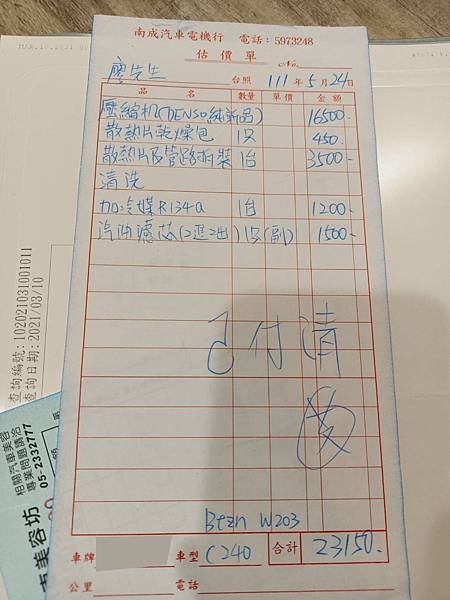 MAR.10.2021
南成汽車電機行 電話：5973248
估價單 No.
廖先生 台照 111年5月24日
品名 數量 單價 金額
壓縮机(DENSO純新品) 16500.
散熱片乾燥包 1只 450.
散熱片及管路拆裝 1台 3500.
清洗
加冷媒R134a 1台 1200.
汽油濾芯(2進2出) 1只(副) 1500.
已付清
Benz W203
車牌 車型 C240 合計 23150.
公里 電話
查詢編號:102021031001011
查詢日期:2021/03/10
相關汽車美容
專業問題請洽
05-2332777
車美容坊